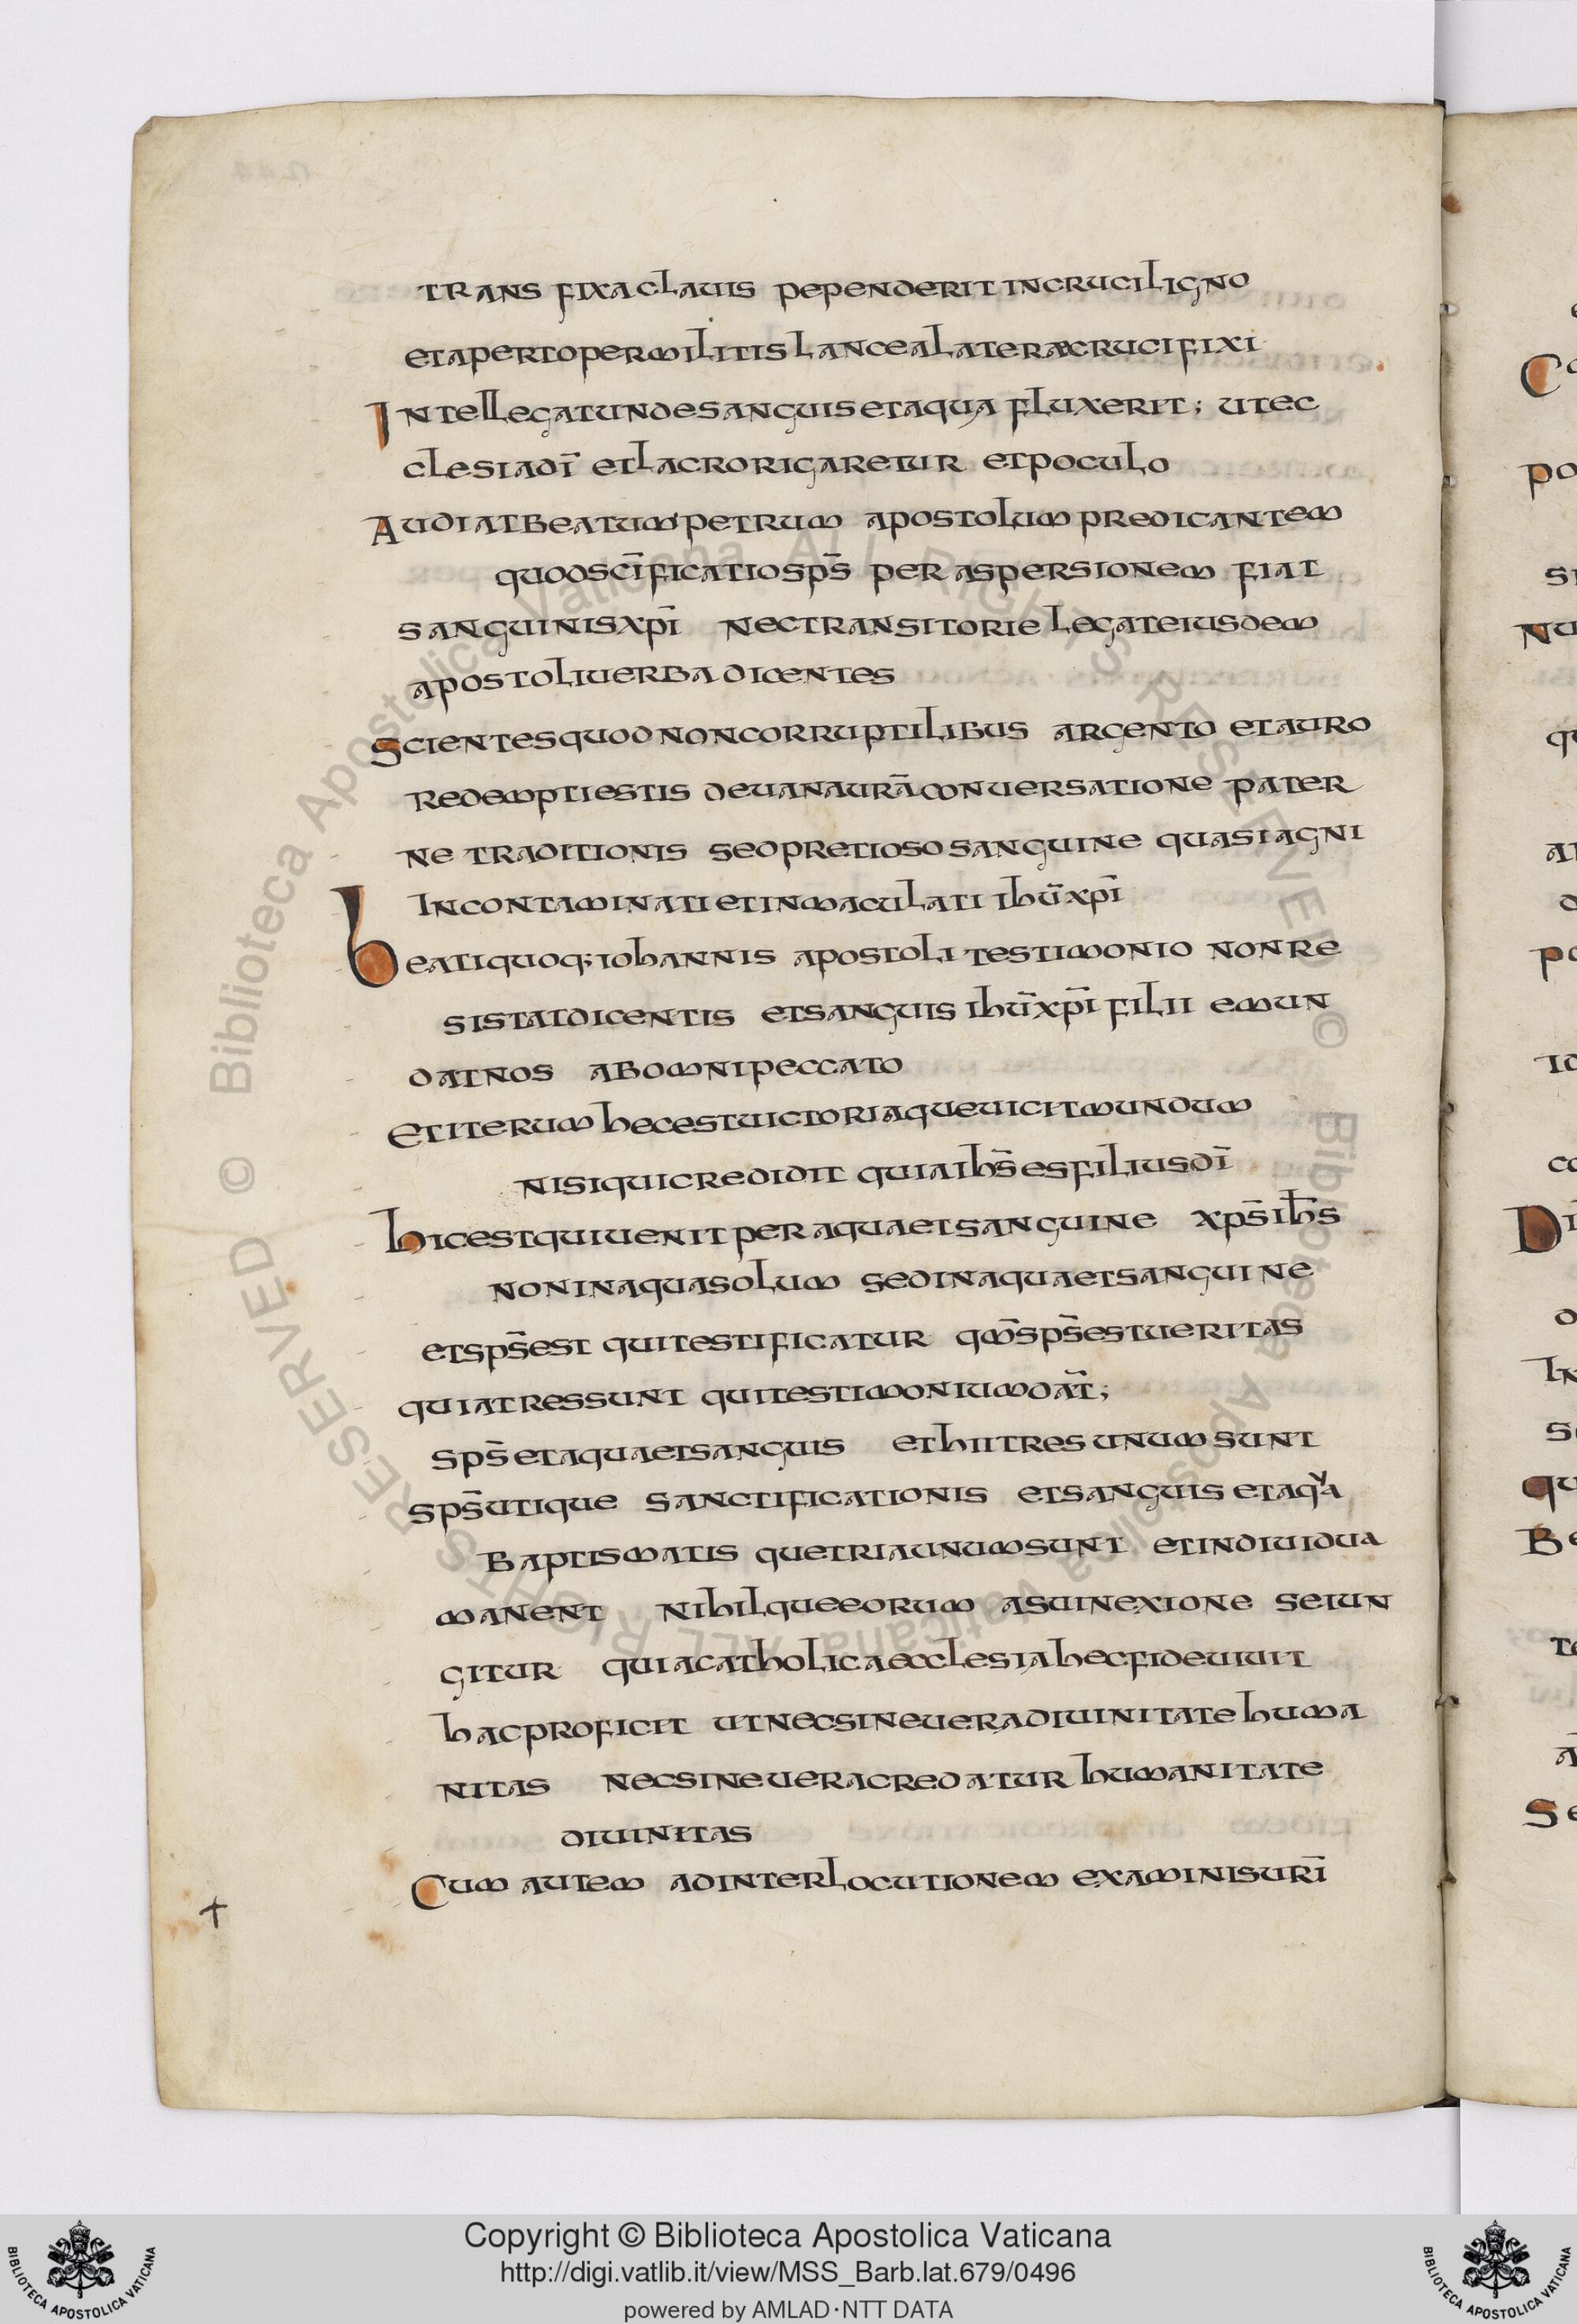 trans fixa clauis pependerit incruciligno
etapertopermilitis lancealateræcrucifixi
Intellegatundesanguisetaqua fluxerit; utec
clesiadī etlacrorigaretur etpoculo
Audiatbeatum petrum apostolum predicantem
quodscīficatiosps̄ per aspersionem fiat
sanguinisxpī nectransitorie legateiusdem
apostoliuerba dicentes
Scientesquod noncorruptilibus argento etauro
redemptiestis deuanaurāconuersatione pater
ne traditionis sedpretiososanguine quasiagni
Incontaminatietinmaculati ihūxpī
beatiquoq;iohannis apostoli testimonio nonre
sistatdicentis etsanguis ihūxpī filii emun
datnos abomnipeccato
Etiterum hecestuictoriaqueuicitmundum
nisiquicredidit quiaihs̄esfiliusdī
hicestquiuenitperaquaetsanguine xps̄ihs̄
noninaquasolum sedinaquaetsanguine
etsps̄est quitestificatur qm̄sps̄estueritas
quiatressunt quitestimoniumdat̄;
sps̄etaquaetsanguis ethiitres unumsunt
sps̄utique sanctificationis etsanguis etaqua
baptismatis quetriaunumsunt etindiuidua
manent nihilqueeorum asuinexione seiun
gitur quiacatholicaecclesiahecfideuiuit
hacproficit utnecsineueradiuinitatehuma
nitas necsineueracredatur humanitate
diuinitas
Cum autem adinterlocutionem examinisurī
+
Copyright © Biblioteca Apostolica Vaticana
http://digi.vatlib.it/view/MSS_Barb.lat.679/0496
powered by AMLAD·NTT DATA